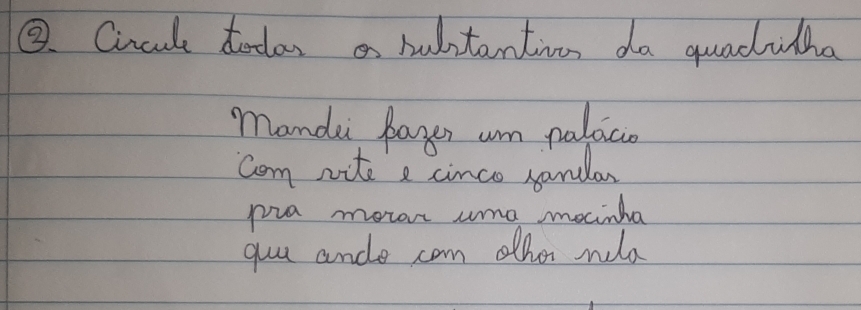 2. Circule todas os substantivos da quadrilha
Mandei fazer um palácio
com vite e cinco janelas
pra morar uma mocinha
que ando com olhos nela